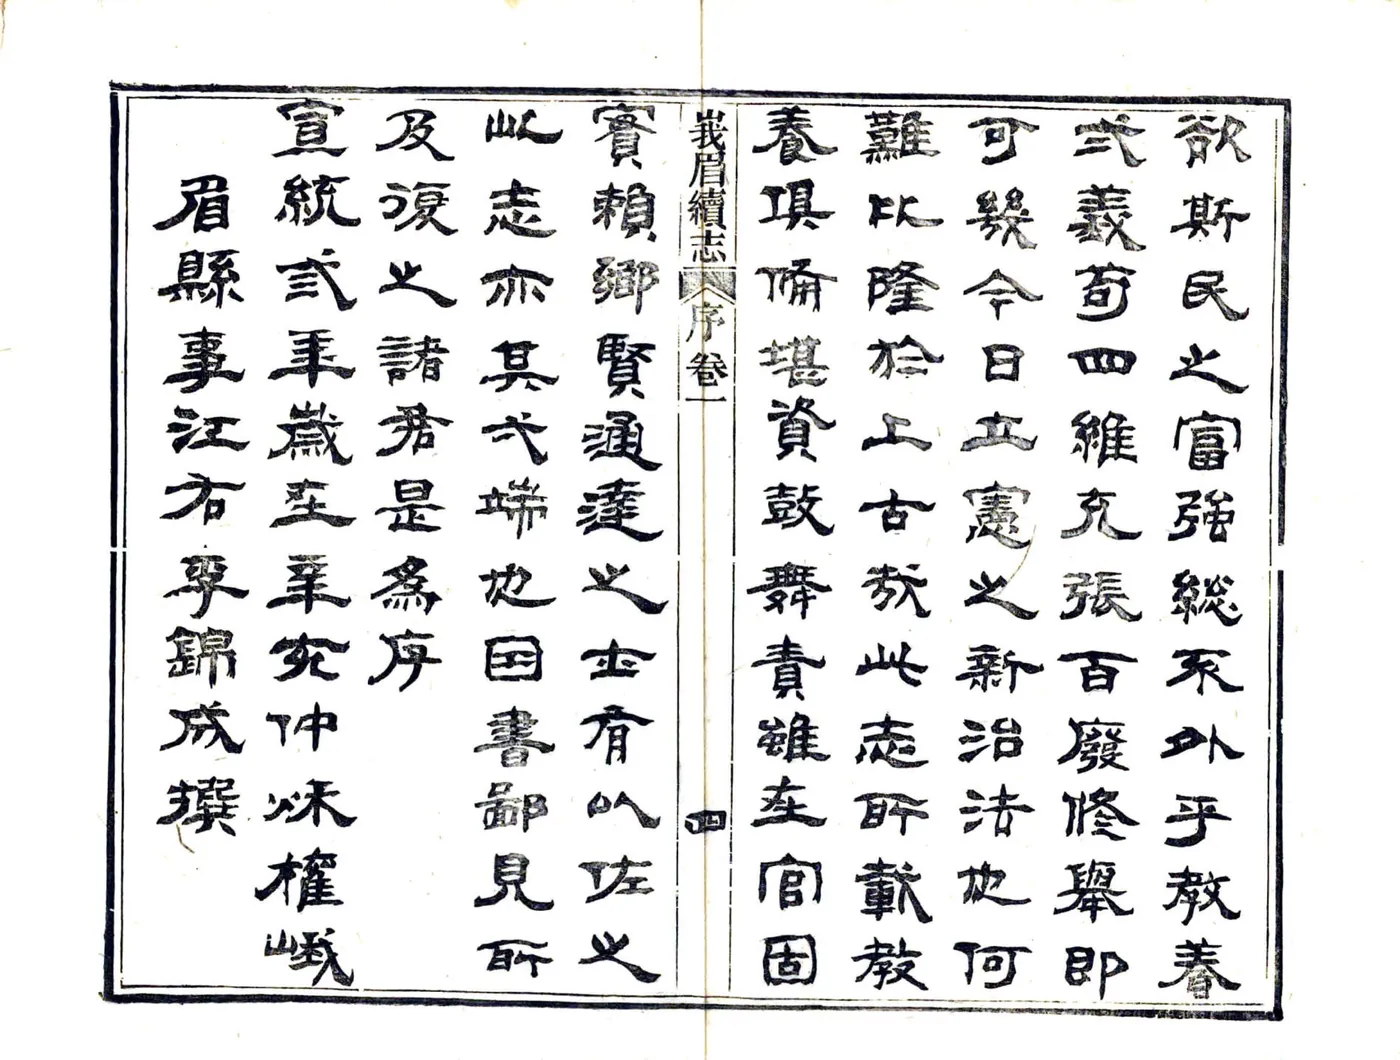 欲斯民之富強総不外乎教養
弍義苟四維充張百廢修舉即
可幾今日立憲之新治法也何
難比隆於上古哉此志所載教
養項俻堪資鼓舞責雖在官固
峩眉續志 序 卷一 四
實賴鄉賢通達之士有以佐之
此志亦其弌端也因書鄙見所
及復之諸君是為序
宣統弍年歲在辛亥仲秌權峨
眉縣事江右李錦成撰